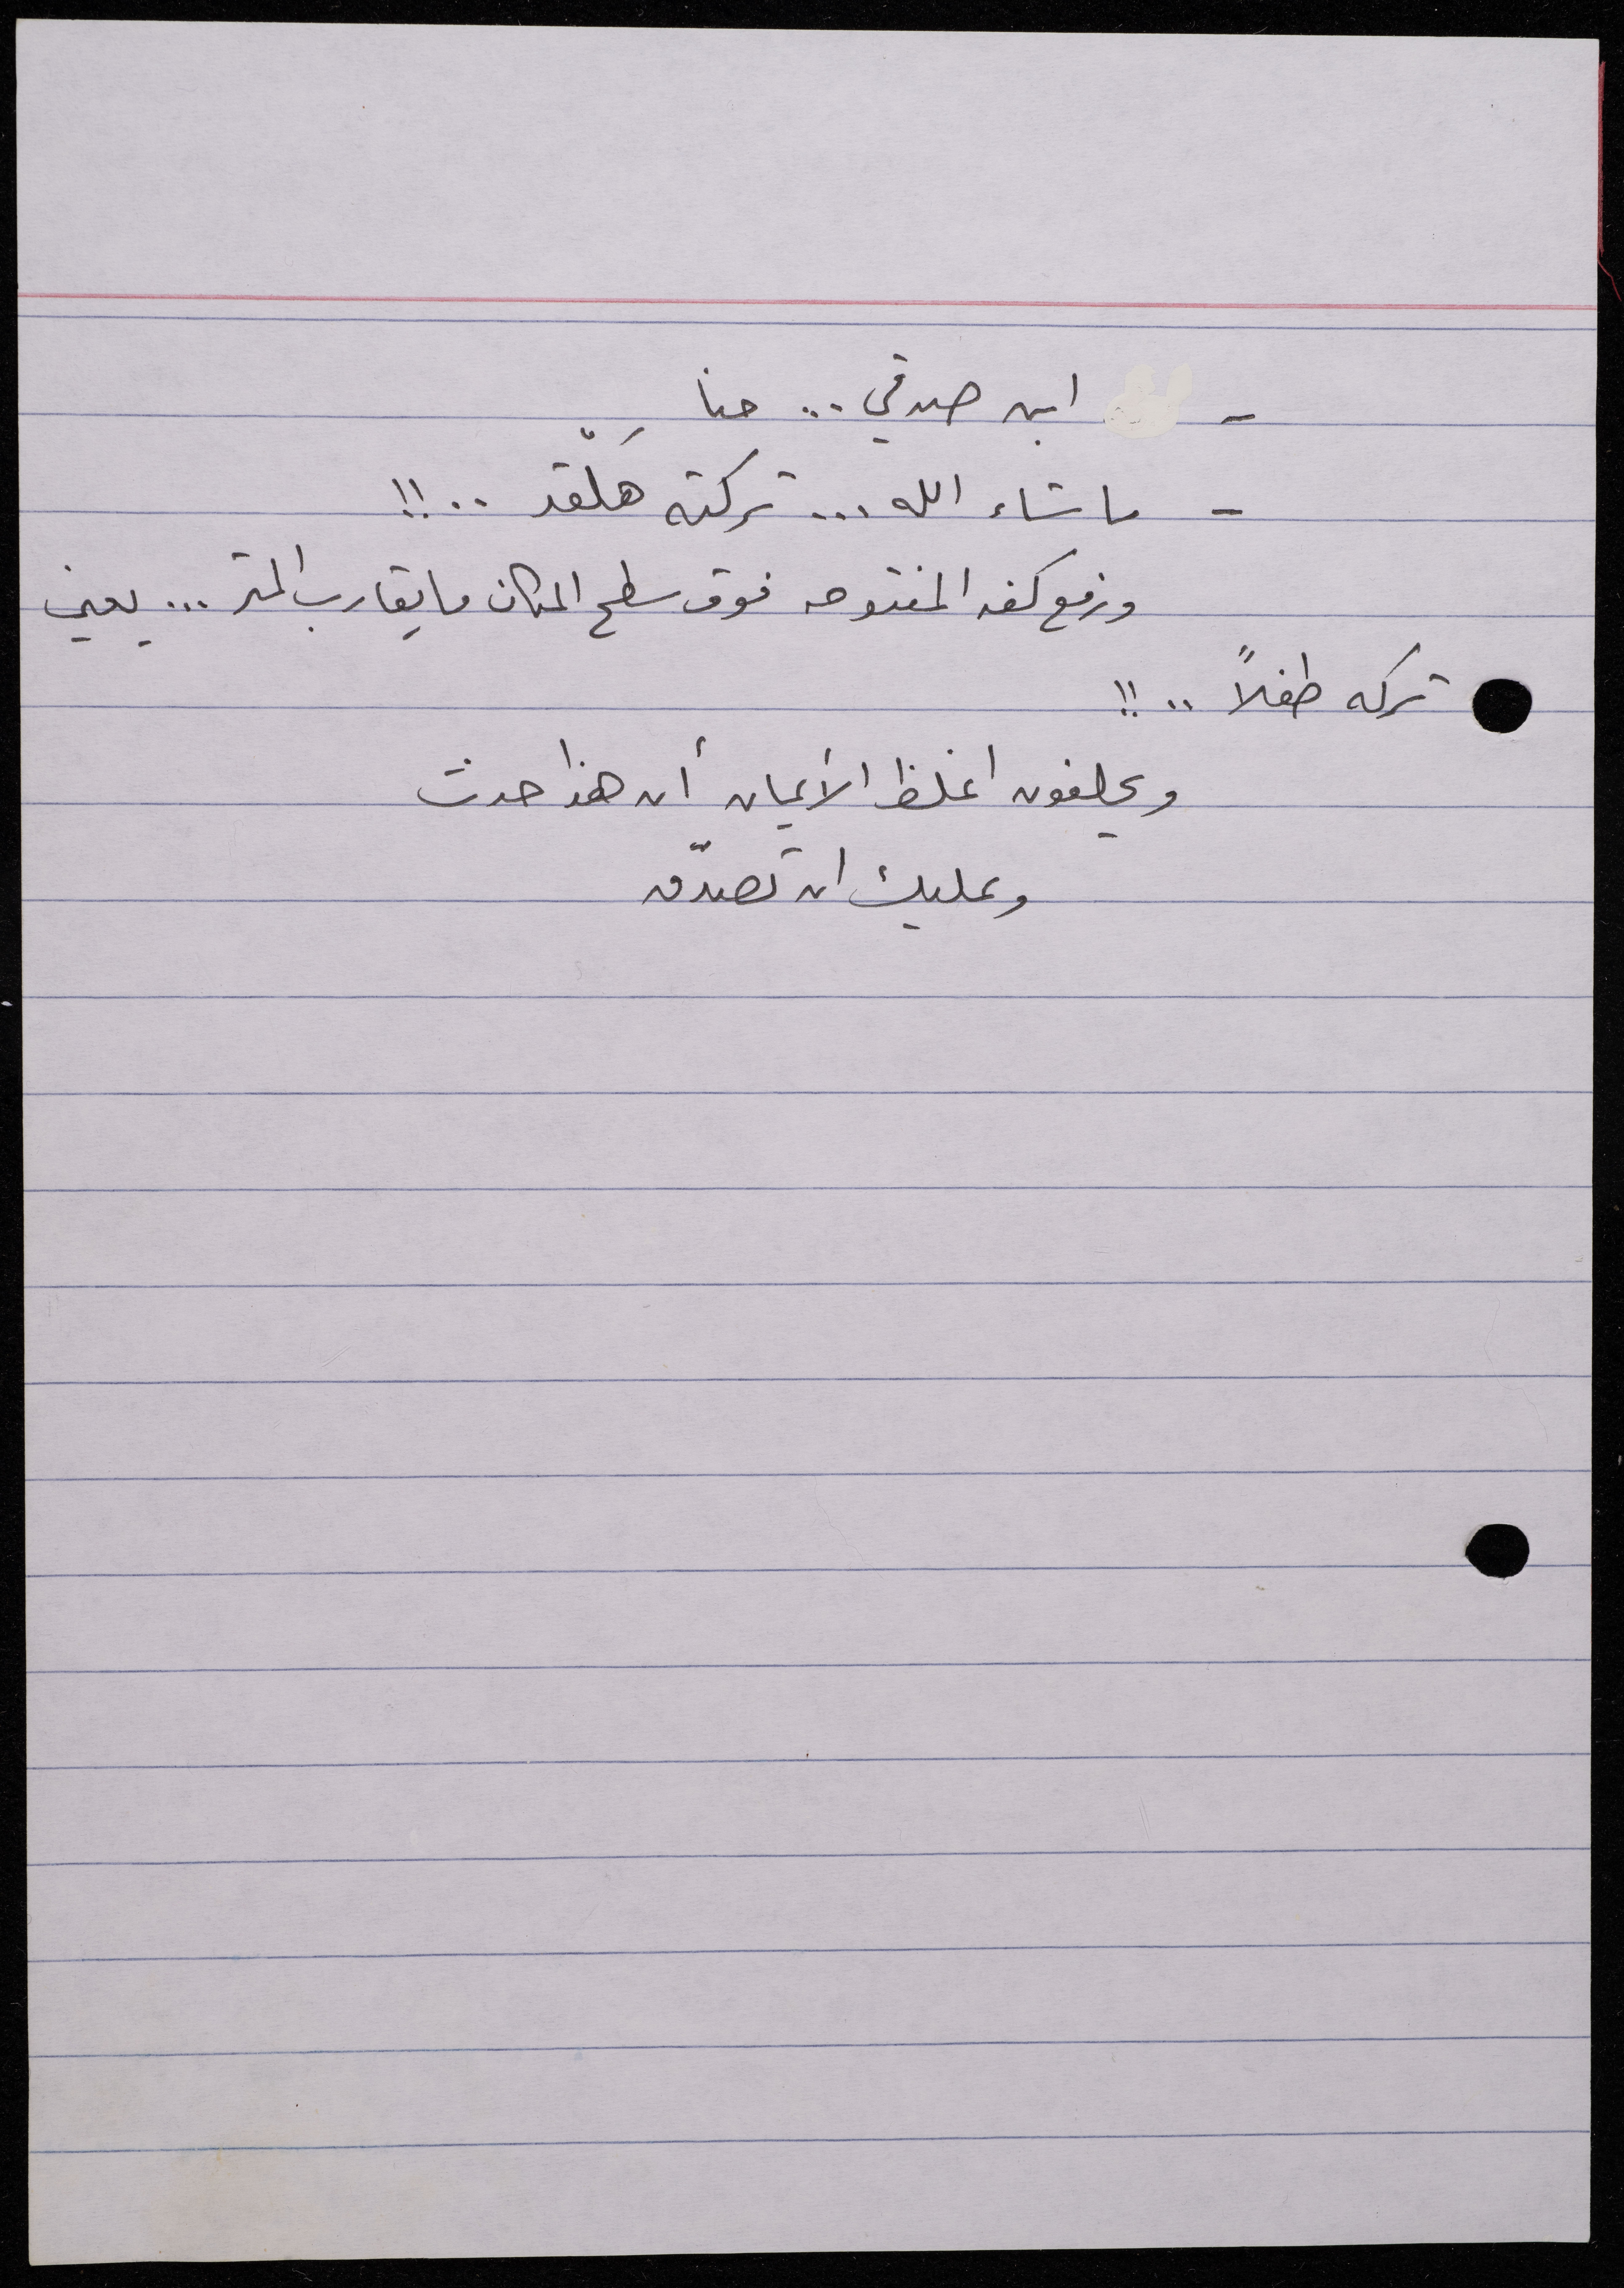 - ابن صدقي ... حنا
- ما شاء الله ... تركته هَلّقد ..!!
ورفع كفه المفتوحه فوق سطح المكان ما يقارب المتر ... يعني
تركه طفلاً ..!!
ويحلفون اغلظ الأيمان أن هذا حدث
وعليك ان تصدّق